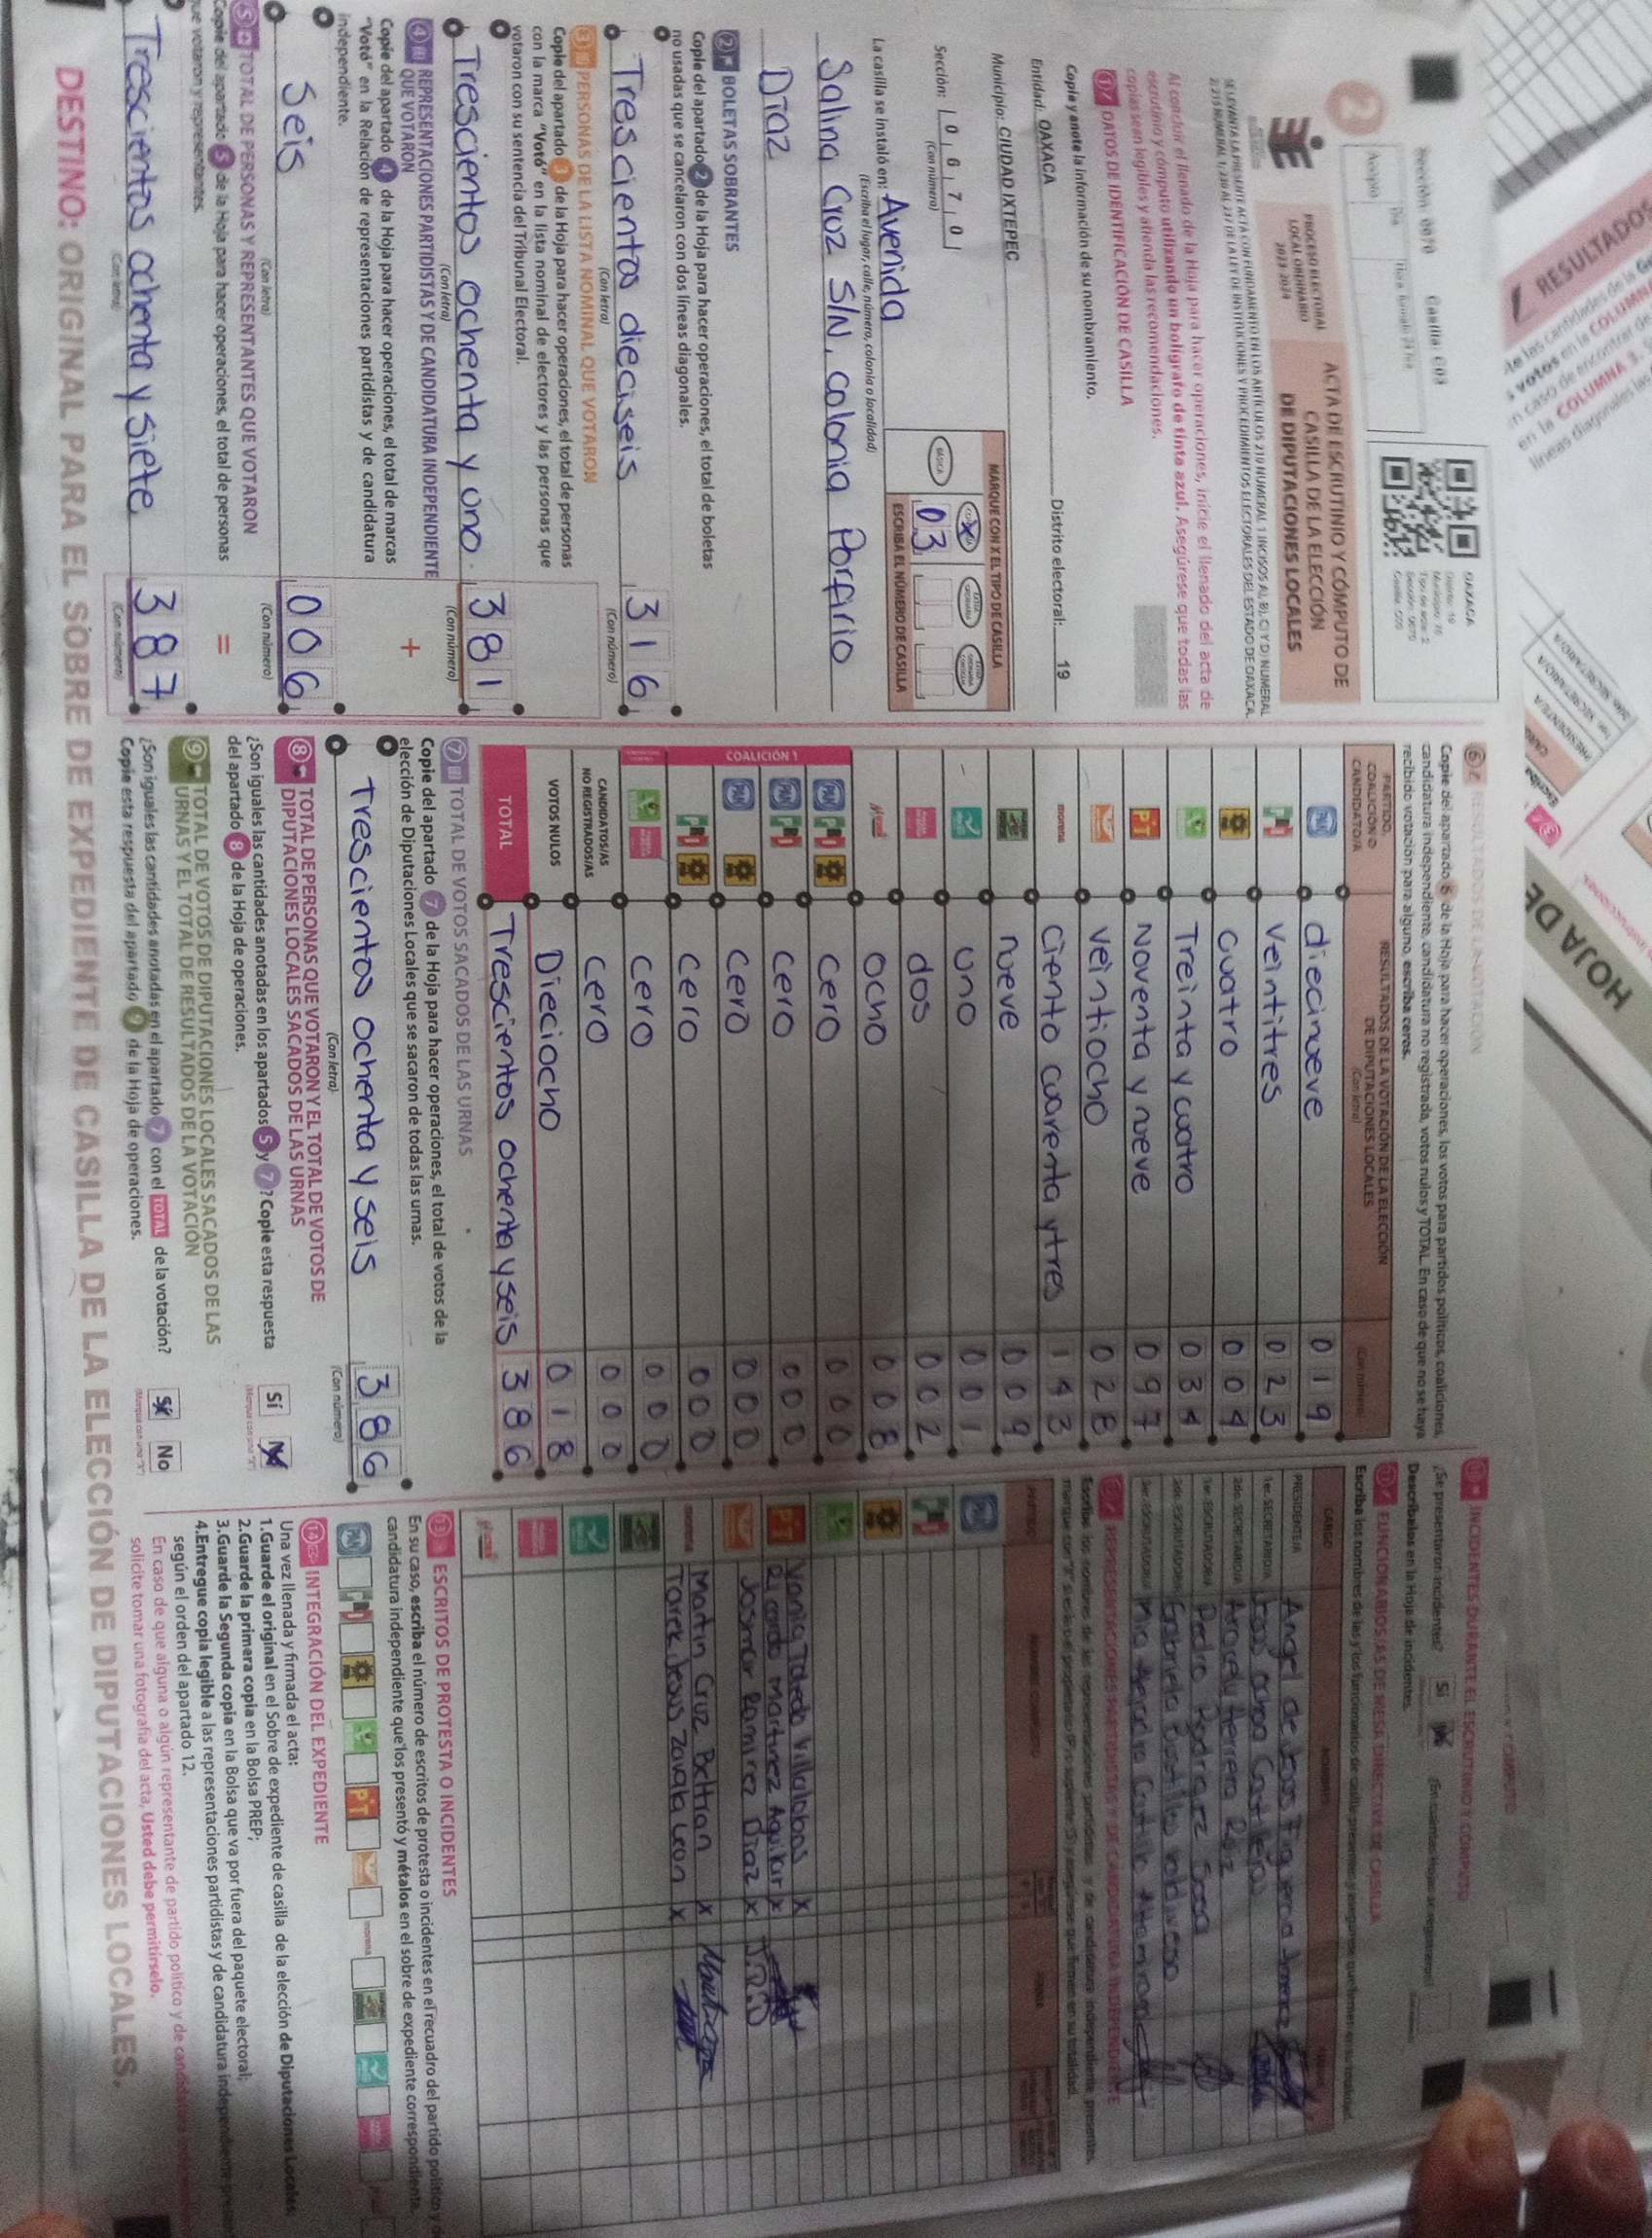 Sección: 0670 Casilla: C03
2
PROCESO ELECTORAL
LOCAL ORDINARIO
2023-2024
ACTA DE ESCRUTINIO Y CÓMPUTO DE
CASILLA DE LA ELECCIÓN
DE DIPUTACIONES LOCALES
OAXACA
Al concluir el llenado de la Hoja para hacer operaciones, inicie el llenado del acta de
escrutinio y cómputo utilizando un bolígrafo de tinta azul. Asegúrese que todas las
copias sean legibles y atienda las recomendaciones.
1 DATOS DE IDENTIFICACIÓN DE CASILLA
Copie y anote la información de su nombramiento.
Entidad: OAXACA Distrito electoral: 19
Municipio: CIUDAD IXTEPEC
Sección: 0 6 7 0
(Con número)
MARQUE CON X EL TIPO DE CASILLA
BÁSICA X
ESCRIBA EL NÚMERO DE CASILLA
03
La casilla se instaló en: Avenida
(Escriba el lugar, calle, número, colonia o localidad)
Salina Cruz S/N, colonia Porfirio
Díaz
2 BOLETAS SOBRANTES
Copie del apartado 2 de la Hoja para hacer operaciones, el total de boletas
no usadas que se cancelaron con dos líneas diagonales.
Trescientos dieciseis 316
(Con letra) (Con número)
3 PERSONAS DE LA LISTA NOMINAL QUE VOTARON
Copie del apartado 3 de la Hoja para hacer operaciones, el total de personas
con la marca "Votó" en la lista nominal de electores y las personas que
votaron con su sentencia del Tribunal Electoral.
Trescientos ochenta y uno. 381
(Con letra) (Con número)
4 REPRESENTACIONES PARTIDISTAS Y DE CANDIDATURA INDEPENDIENTE
QUE VOTARON
+
Copie del apartado 4 de la Hoja para hacer operaciones, el total de marcas
"Votó" en la Relación de representaciones partidistas y de candidatura
independiente.
Seis 006
(Con letra) (Con número)
5 TOTAL DE PERSONAS Y REPRESENTANTES QUE VOTARON
=
Copie del apartado 5 de la Hoja para hacer operaciones, el total de personas
que votaron y representantes.
Trescientos ochenta y siete 387
(Con letra) (Con número)
6 RESULTADOS DE LA VOTACIÓN
Copie del apartado 6 de la Hoja para hacer operaciones, los votos para partidos políticos, coaliciones,
candidatura independiente, candidatura no registrada, votos nulos y TOTAL. En caso de que no se haya
recibido votación para alguno, escriba ceros.
PARTIDO,
COALICIÓN O
CANDIDATO/A
RESULTADOS DE LA VOTACIÓN DE LA ELECCIÓN
DE DIPUTACIONES LOCALES
(Con letra) (Con número)
PAN diecinueve 019
PRI veintitres 023
cuatro 004
Treinta y cuatro 034
PT Noventa y nueve 097
veintiocho 028
morena Ciento cuarenta y tres 143
nueve 009
uno 001
dos 002
ocho 008
COALICIÓN 1
PAN PRI cero 000
PAN PRI cero 000
PAN cero 000
PRI cero 000
cero 000
CANDIDATOS/AS
NO REGISTRADOS/AS cero 000
VOTOS NULOS Dieciocho 018
TOTAL Trescientos ochenta y seis 386
7 TOTAL DE VOTOS SACADOS DE LAS URNAS
Copie del apartado 7 de la Hoja para hacer operaciones, el total de votos de la
elección de Diputaciones Locales que se sacaron de todas las urnas.
Trescientos ochenta y seis 386
(Con letra) (Con número)
8 TOTAL DE PERSONAS QUE VOTARON Y EL TOTAL DE VOTOS DE
DIPUTACIONES LOCALES SACADOS DE LAS URNAS
¿Son iguales las cantidades anotadas en los apartados 5 y 7? Copie esta respuesta
del apartado 8 de la Hoja de operaciones.
Sí No
9 TOTAL DE VOTOS DE DIPUTACIONES LOCALES SACADOS DE LAS
URNAS Y EL TOTAL DE RESULTADOS DE LA VOTACIÓN
¿Son iguales las cantidades anotadas en el apartado 7 con el TOTAL de la votación?
Copie esta respuesta del apartado 9 de la Hoja de operaciones.
Sí No
INCIDENTES DURANTE EL ESCRUTINIO Y CÓMPUTO
¿Se presentaron incidentes? Sí
Descríbalos en la Hoja de incidentes.
FUNCIONARIOS/AS DE MESA DIRECTIVA DE CASILLA
CARGO
PRESIDENTE/A
1er. SECRETARIO/A
2do. SECRETARIO/A Aracely Herrera Ruiz
1er. ESCRUTADOR/A Pedro Rodriguez Sosa
2do. ESCRUTADOR/A
REPRESENTACIONES PARTIDISTAS Y DE CANDIDATURA INDEPENDIENTE
PAN
PRI
Yamila Toledo Villalobos x
PT Ricardo Martinez Aguilar x
Josmar Ramirez Diaz x
Martin Cruz Beltran x
morena Tarek Jesus Zavala Leon x
13 ESCRITOS DE PROTESTA O INCIDENTES
En su caso, escriba el número de escritos de protesta o incidentes en el recuadro del partido político y de
candidatura independiente que los presentó y métalos en el sobre de expediente correspondiente.
PAN PRI PT morena
14 INTEGRACIÓN DEL EXPEDIENTE
Una vez llenada y firmada el acta:
1.Guarde el original en el Sobre de expediente de casilla de la elección de Diputaciones Locales;
2.Guarde la primera copia en la Bolsa PREP;
3.Guarde la Segunda copia en la Bolsa que va por fuera del paquete electoral;
4.Entregue copia legible a las representaciones partidistas y de candidatura independiente
según el orden del apartado 12.
En caso de que alguna o algún representante de partido político y de candidatura
solicite tomar una fotografía del acta, Usted debe permitírselo.
DESTINO: ORIGINAL PARA EL SOBRE DE EXPEDIENTE DE CASILLA DE LA ELECCIÓN DE DIPUTACIONES LOCALES.
RESULTADOS
HOJA DE